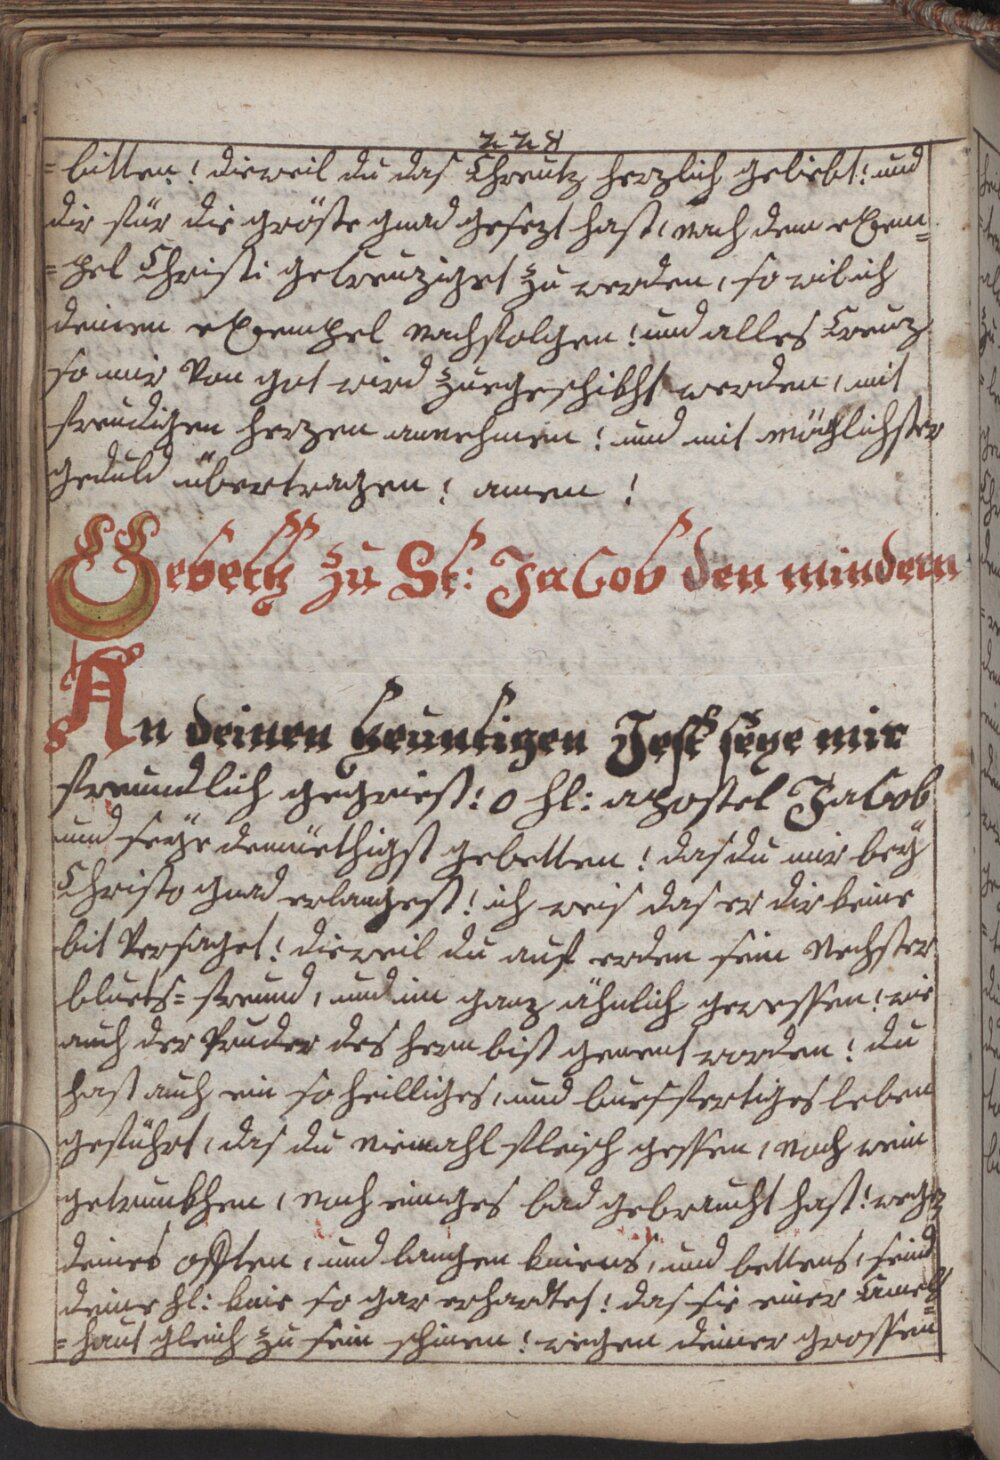 228
=bitten! dieweil du das Chreutz herzlich geliebt! und
dir für die gröste gnad gesezt hast, nach dem exem=
=pel Christi gekreuziget zu werden, so wil ich
deinen exempel nachfolgen! und alles Creuz
so mir von got wird zuegeschikht werden, mit
freudigen herzen annehmen! und mit möglichster
geduld übertragen! amen!
Gebett zu St: Jacob den mindern
An deinen heuntigen Fest seye mir
freundlich gegriest! o hl: apostel Jacob
und seye demüethigst gebetten! das du mir bey
Christo gnad erlangest! ich weis das er dir keine
bit versaget! dieweil du auf erden sein nechster
bluets=freund, und im ganz ähnlich gewessen! wie
auch der Pruder des hern bist genent worden! du
hast auch ein so heilliges, und buesfertiges leben
geführt, das du niemahl fleisch gessen, noch wein
getrunkhen, noch einiges bad gebraucht hast! wegen
deines offten, und langen kniens, und bettens, seind
deine hl: knie so gar erhardtet! das sie einer Camel=
=haut gleich zu sein schinen! wegen deiner grossen